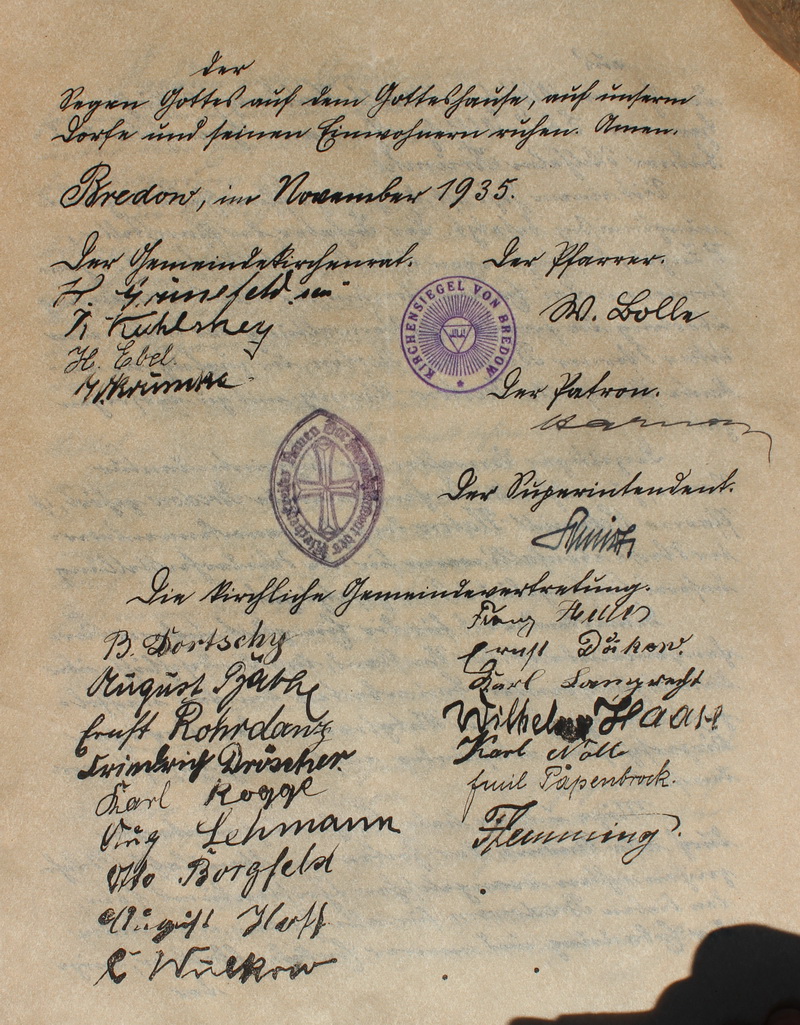 der
Segen Gottes auf dem Gotteshause, auf unserm
Dorfe und seinen Einwohnern ruhen. Amen.
Bredow, im November 1935.
Der Gemeindekirchenrat.
H. Grünefeld sen
H. Ebel.
Der Pfarrer.
W. Bolle
KIRCHENSIEGEL VON BREDOW
Der Patron.
Der Superintendent.
Die kirchliche Gemeindevertretung.
B. Dortschy
August
Ernst Rohrdanz
Friedrich Dröscher.
Karl Rogge
Aug Lehmann
Otto Borgfeld
August
Wulkow
Ernst Däkow.
Karl Lamprecht
Wilhelm Haase
Karl Nölle
Emil Papenbrock.
Flemming.